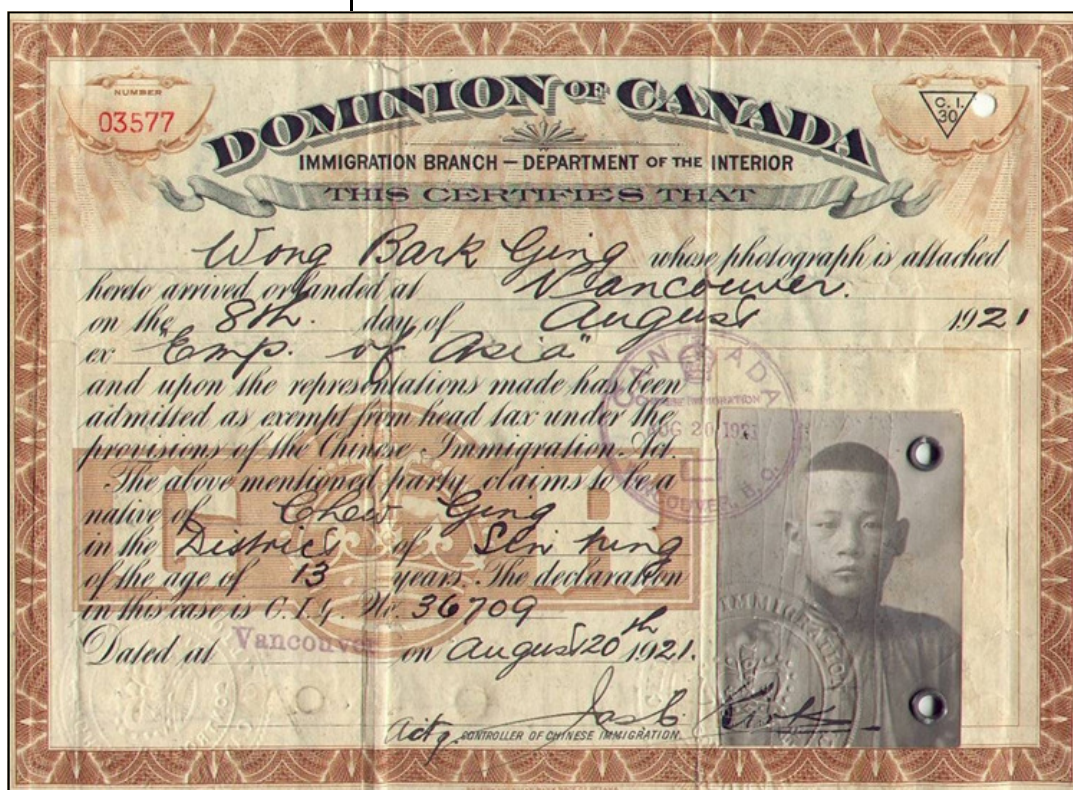 NUMBER
03577
C. I.
30
DOMINION OF CANADA
IMMIGRATION BRANCH — DEPARTMENT OF THE INTERIOR
THIS CERTIFIES THAT
Wong Bark Ging whose photograph is attached
hereto arrived or landed at Vancouver.
on the 8th. day of August 1921
ex "Emp. of Asia"
and upon the representations made has been
admitted as exempt from head tax under the
provisions of the Chinese Immigration Act.
The above mentioned party claims to be a
native of Chew Ging
in the District of Sin ning
of the age of 13 years. The declaration
in this case is C.I.4. No. 36709
Dated at Vancouver on August 20th 1921.
CANADA
CHINESE IMMIGRATION
AUG 20 1921
VANCOUVER, B.C.
IMMIGRATION
Actg. CONTROLLER OF CHINESE IMMIGRATION.